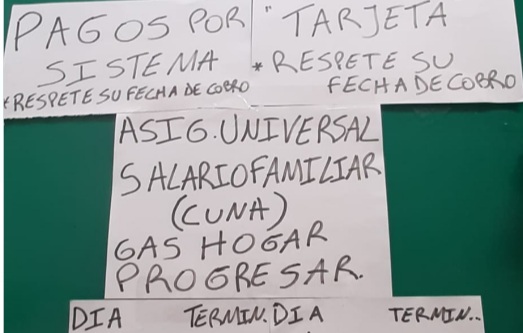 PAGOS POR
SISTEMA
*RESPETE SU FECHA DE COBRO
" TARJETA
* RESPETE SU
FECHA DE COBRO
ASIG. UNIVERSAL
SALARIO FAMILIAR
(CUNA)
GAS HOGAR
PROGRESAR.
DIA TERMIN. DIA TERMIN..